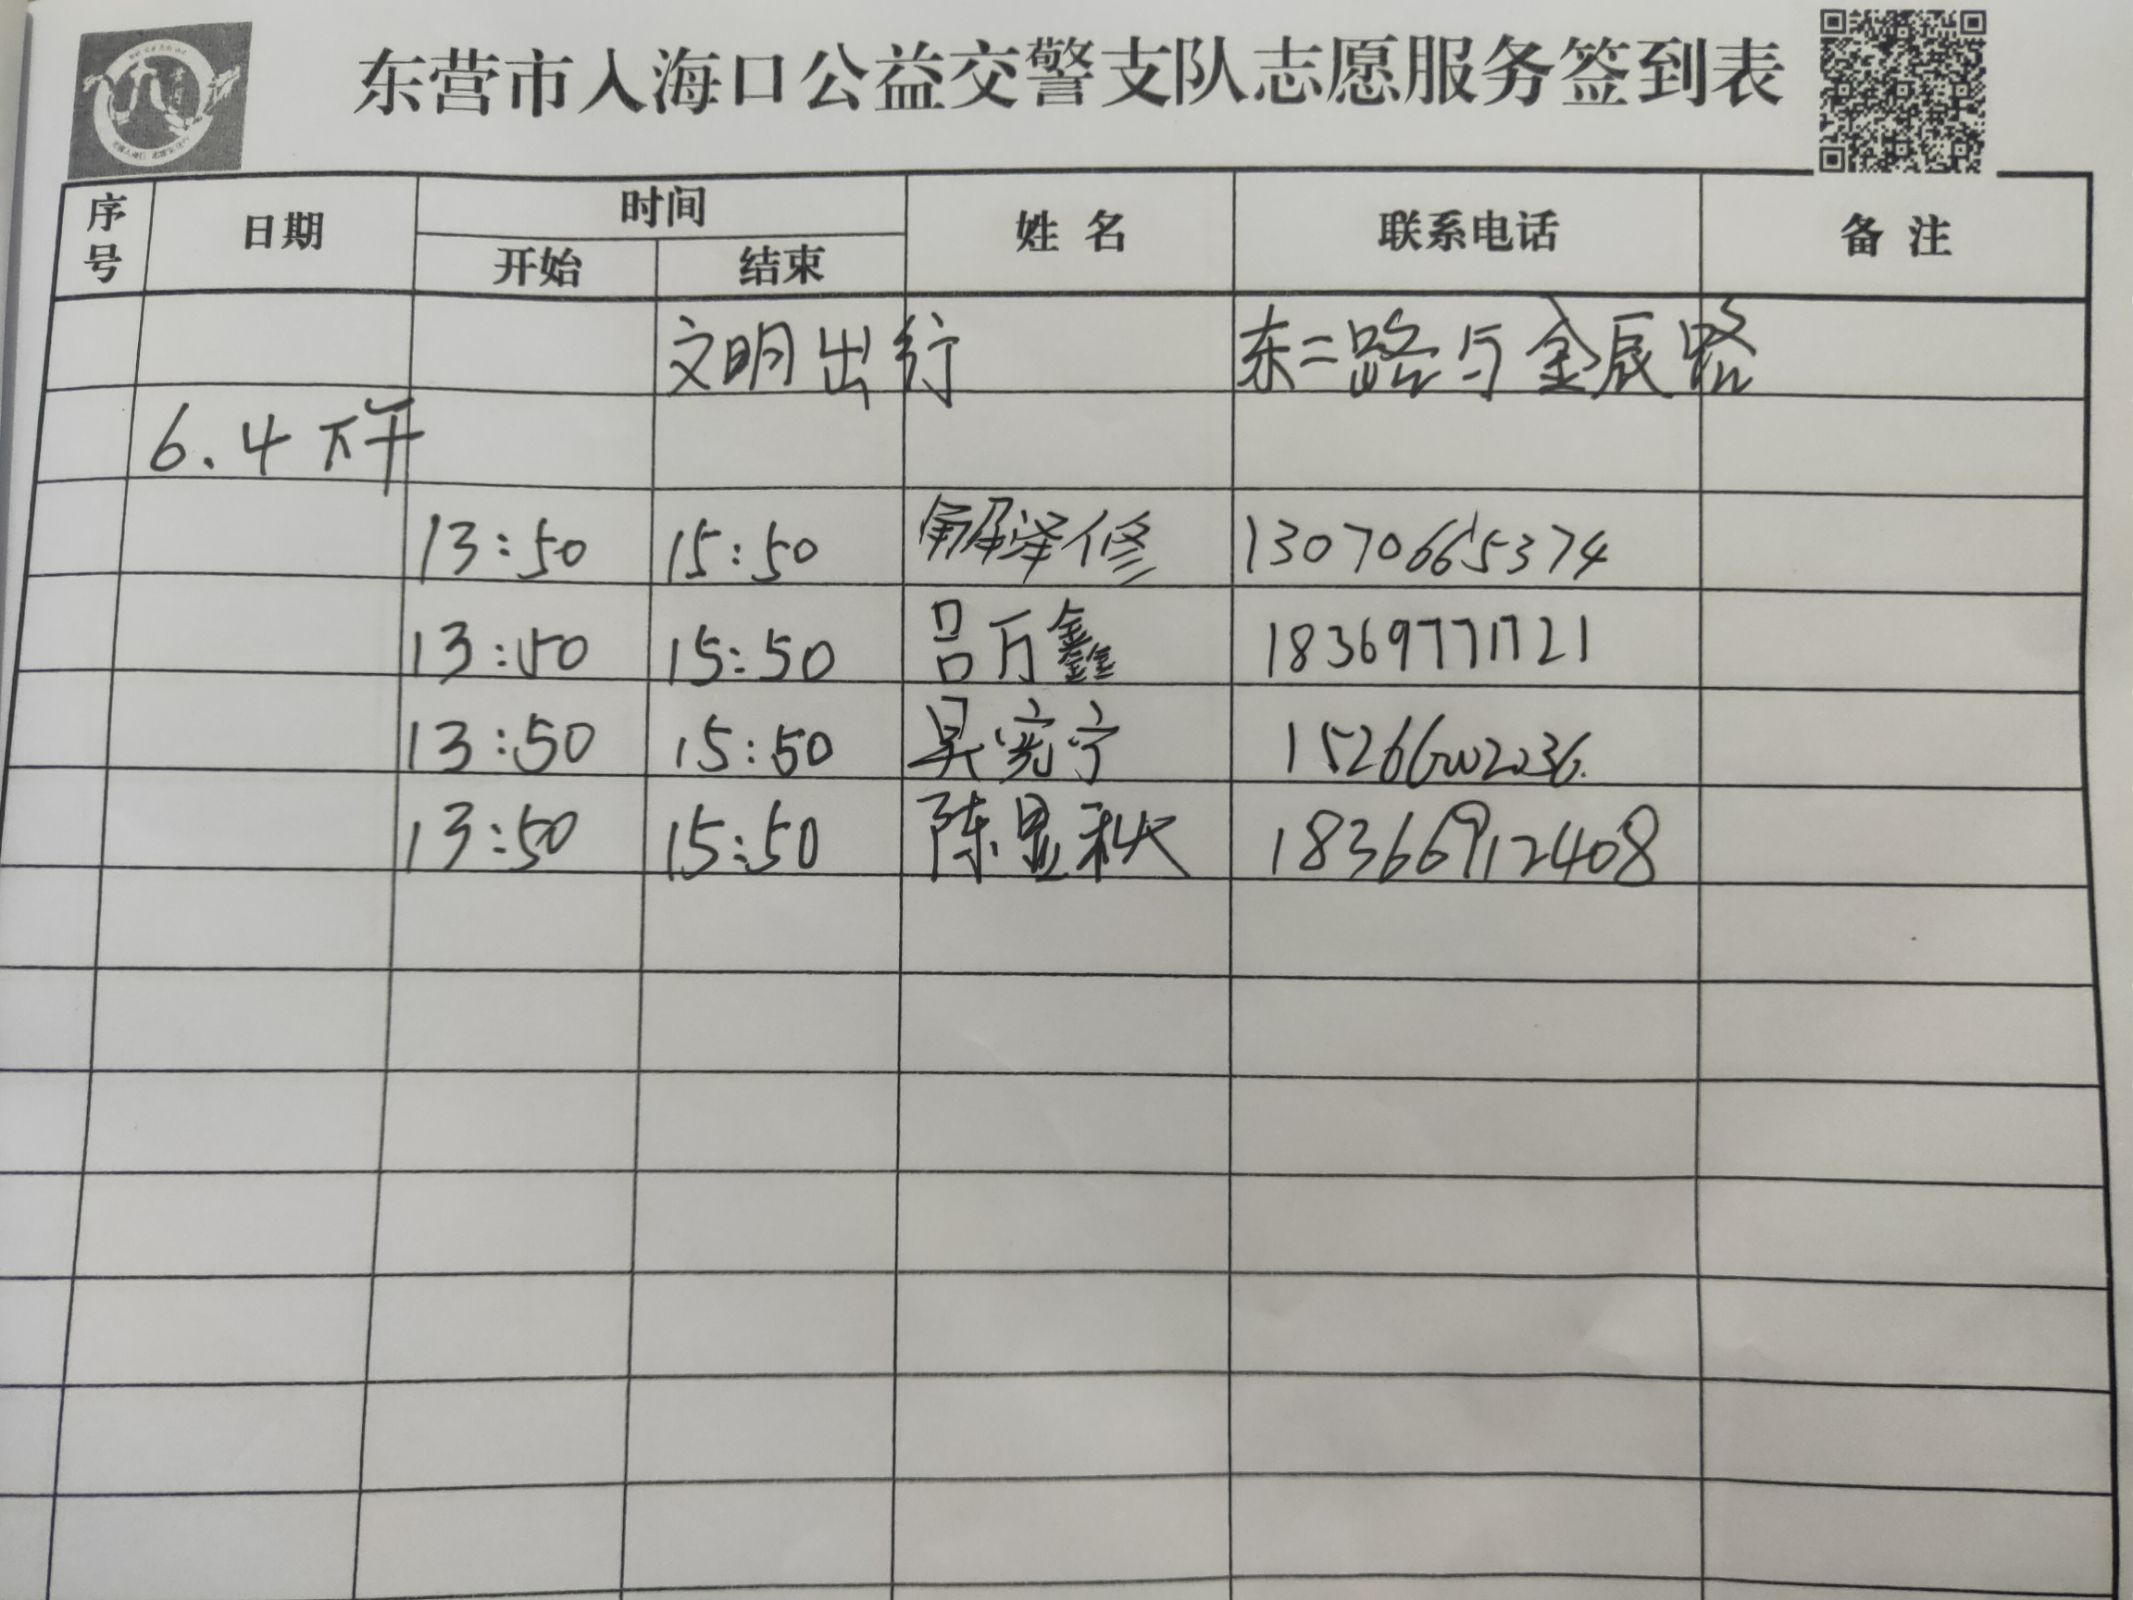 东营市入海口公益交警支队志愿服务签到表
序号 日期 时间 开始 结束 姓名 联系电话 备注
文明出行 东二路与金辰路
6.4下午
13:50 15:50 解泽修 13070665374
13:50 15:50 吕万鑫 18369771721
13:50 15:50 吴宪宁
13:50 15:50 陈显秋 18366912408